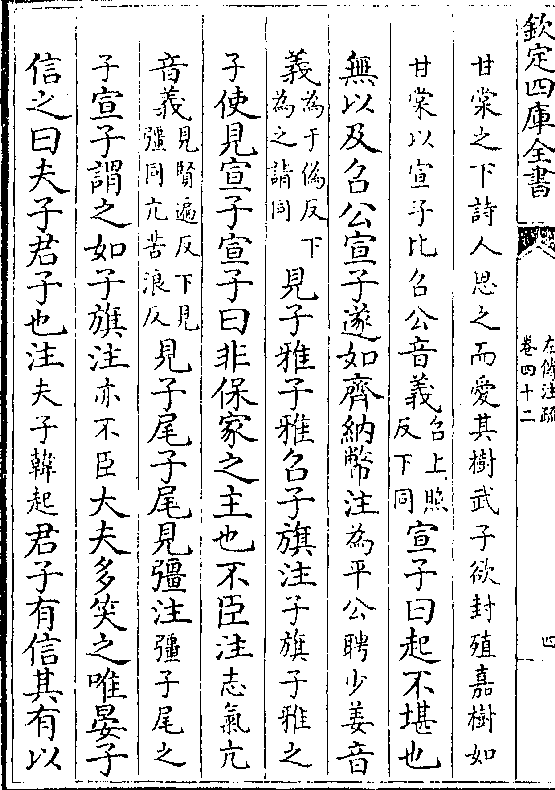 欽定四庫全書
左傳注疏
卷四十二
四
甘棠之下詩人思之而愛其樹武子欲封殖嘉樹如
甘棠以宣子比召公音義召上照
反下同宣子曰起不堪也
無以及召公宣子遂如齊納幣注為平公聘少姜音
義為于偽反下
為之請同見子雅子雅召子旗注子旗子雅之
子使見宣子宣子曰非保家之主也不臣注志氣亢
音義見賢遍反下見
彊同亢苦浪反見子尾子尾見彊注彊子尾之
子宣子謂之如子旗注亦不臣大夫多笑之唯晏子
信之曰夫子君子也注夫子韓起君子有信其有以